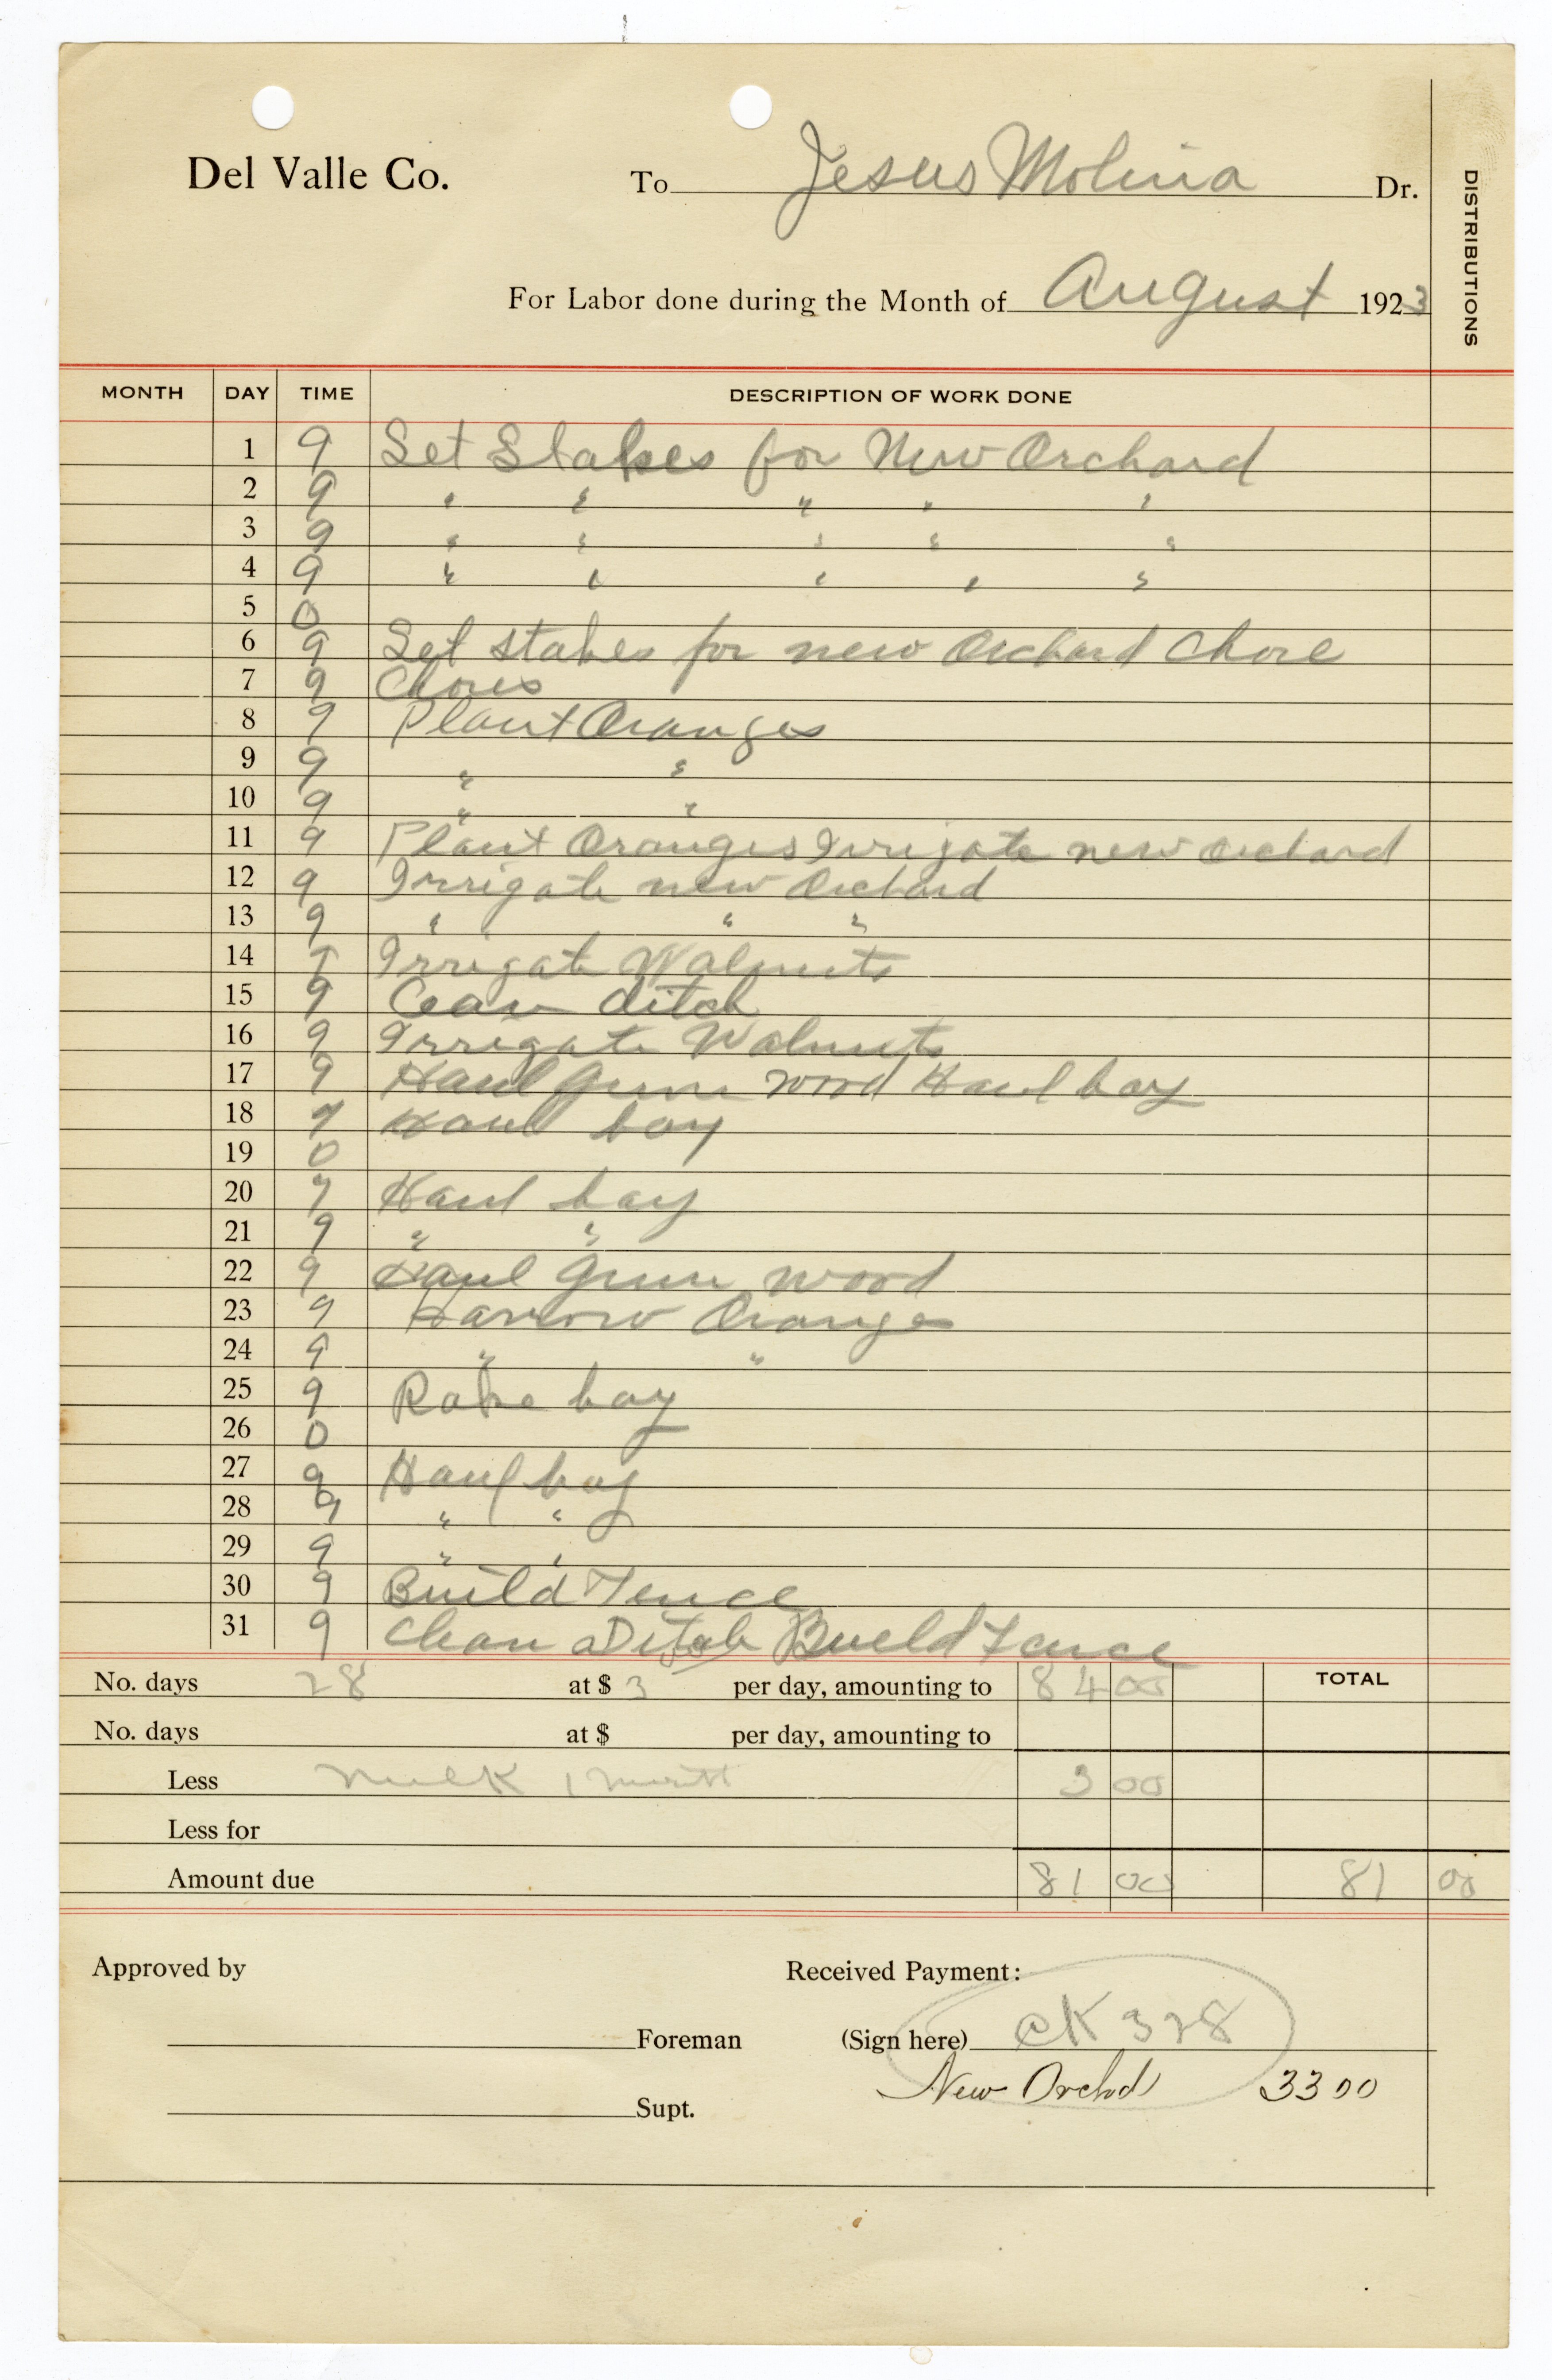 Del Valle Co. To Jesus Molina Dr.
DISTRIBUTIONS
For Labor done during the Month of August 1923
MONTH DAY TIME DESCRIPTION OF WORK DONE
1 9 Set Stakes for New Orchard
2 9 " " " " "
3 9 " " " " "
4 9 " " " " "
5 0
6 9 Set stakes for new Orchard Chore
7 9 Chores
8 9 Plant Oranges
9 9 " "
10 9 " "
11 9 Plant Oranges Irrigate new Orchard
12 9 Irrigate new Orchard
13 9 " " "
14 Irrigate Walnuts
15 9 Cean ditch
16 9 Irrigate Walnuts
17 9 Haul Gum wood Haul hay
18 9 Haul hay
19 0
20 9 Haul hay
21 9 " "
22 9 Haul Gum wood
23 9 Harrow Oranges
24 9 " "
25 9 Rake hay
26 0
27 9 Haul hay
28 9 " "
29 9 " "
30 9 Build Fence
31 9 Clean Ditch Build Fence
No. days 28 at $ 3 per day, amounting to 84 00 TOTAL
No. days at $ per day, amounting to
Less Milk 1 month 3 00
Less for
Amount due 81 00 81 00
Approved by Received Payment:
Foreman (Sign here) CK 328
New Orchd 33 00
Supt.